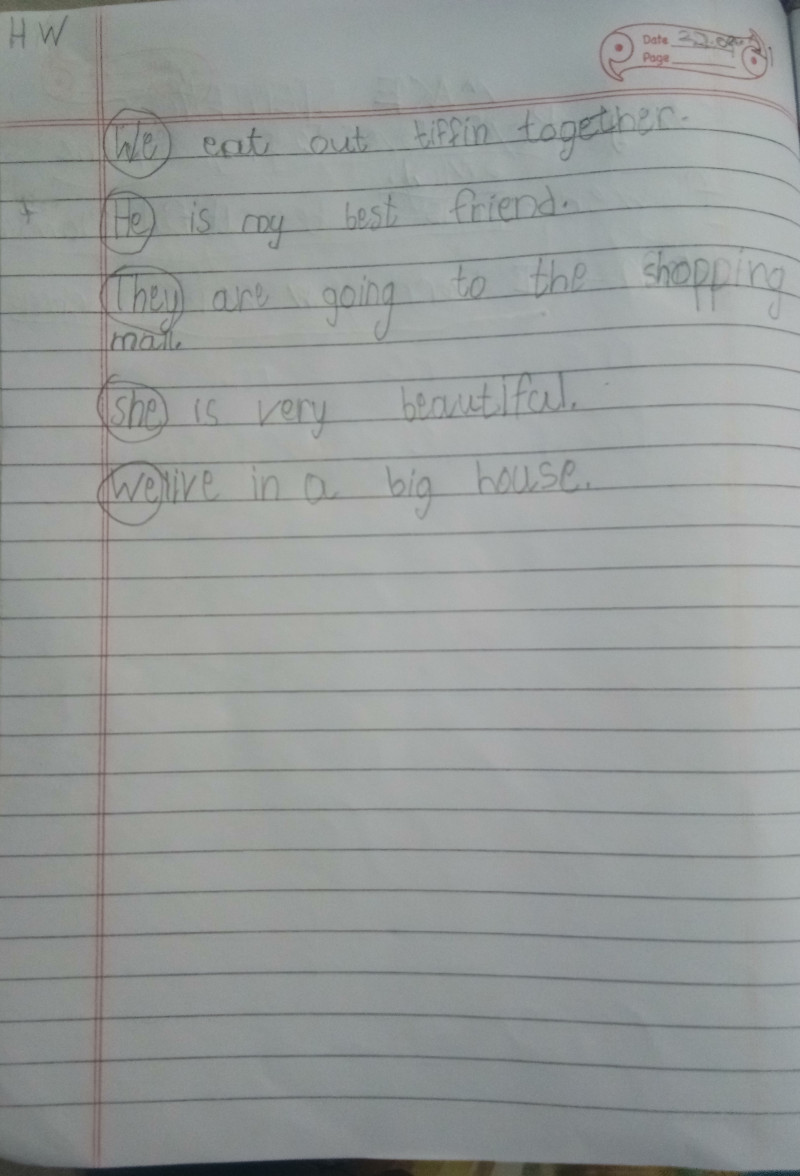 HW
Date
Page
We eat out tiffin together.
He is my best friend.
They are going to the shopping
mall.
she is very beautiful.
We live in a big house.